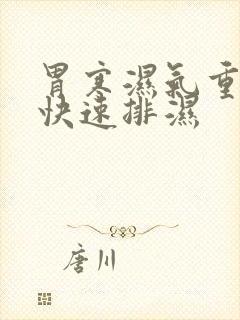 胃寒濕氣重
快速排濕
唐川